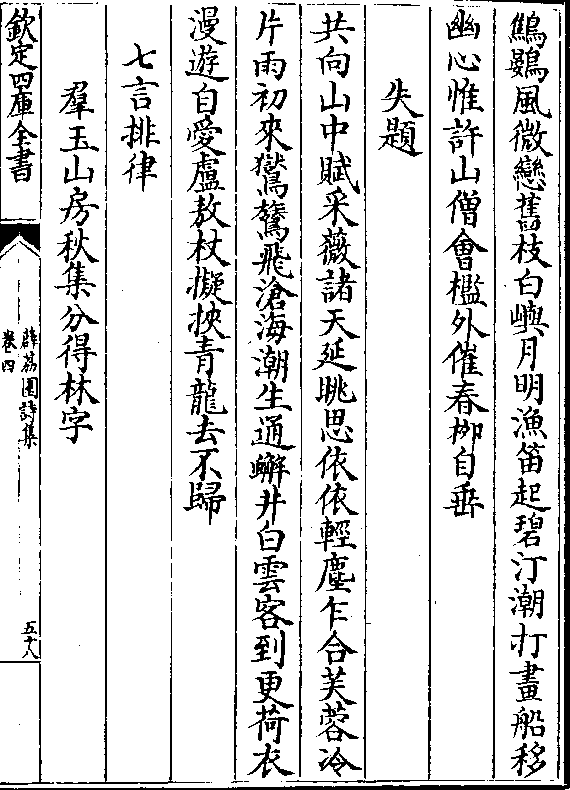 鷦鷯風微戀舊枝白嶼月明漁笛起碧汀潮打畫船移
幽心惟許山僧會檻外催春栁自垂
失題
共向山中賦采薇諸天延眺思依依輕塵乍合芙蓉冷
片雨初來鸑鷟飛滄海潮生通蠏井白雲客到更荷衣
漫遊自愛盧敖杖擬挾青龍去不歸
七言排律
羣玉山房秋集分得林字
欽定四庫全書
薜荔園詩集
卷四
五十八